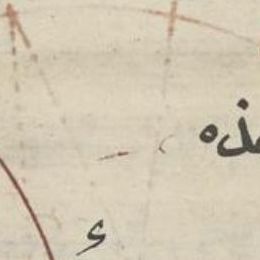 هذه
ء